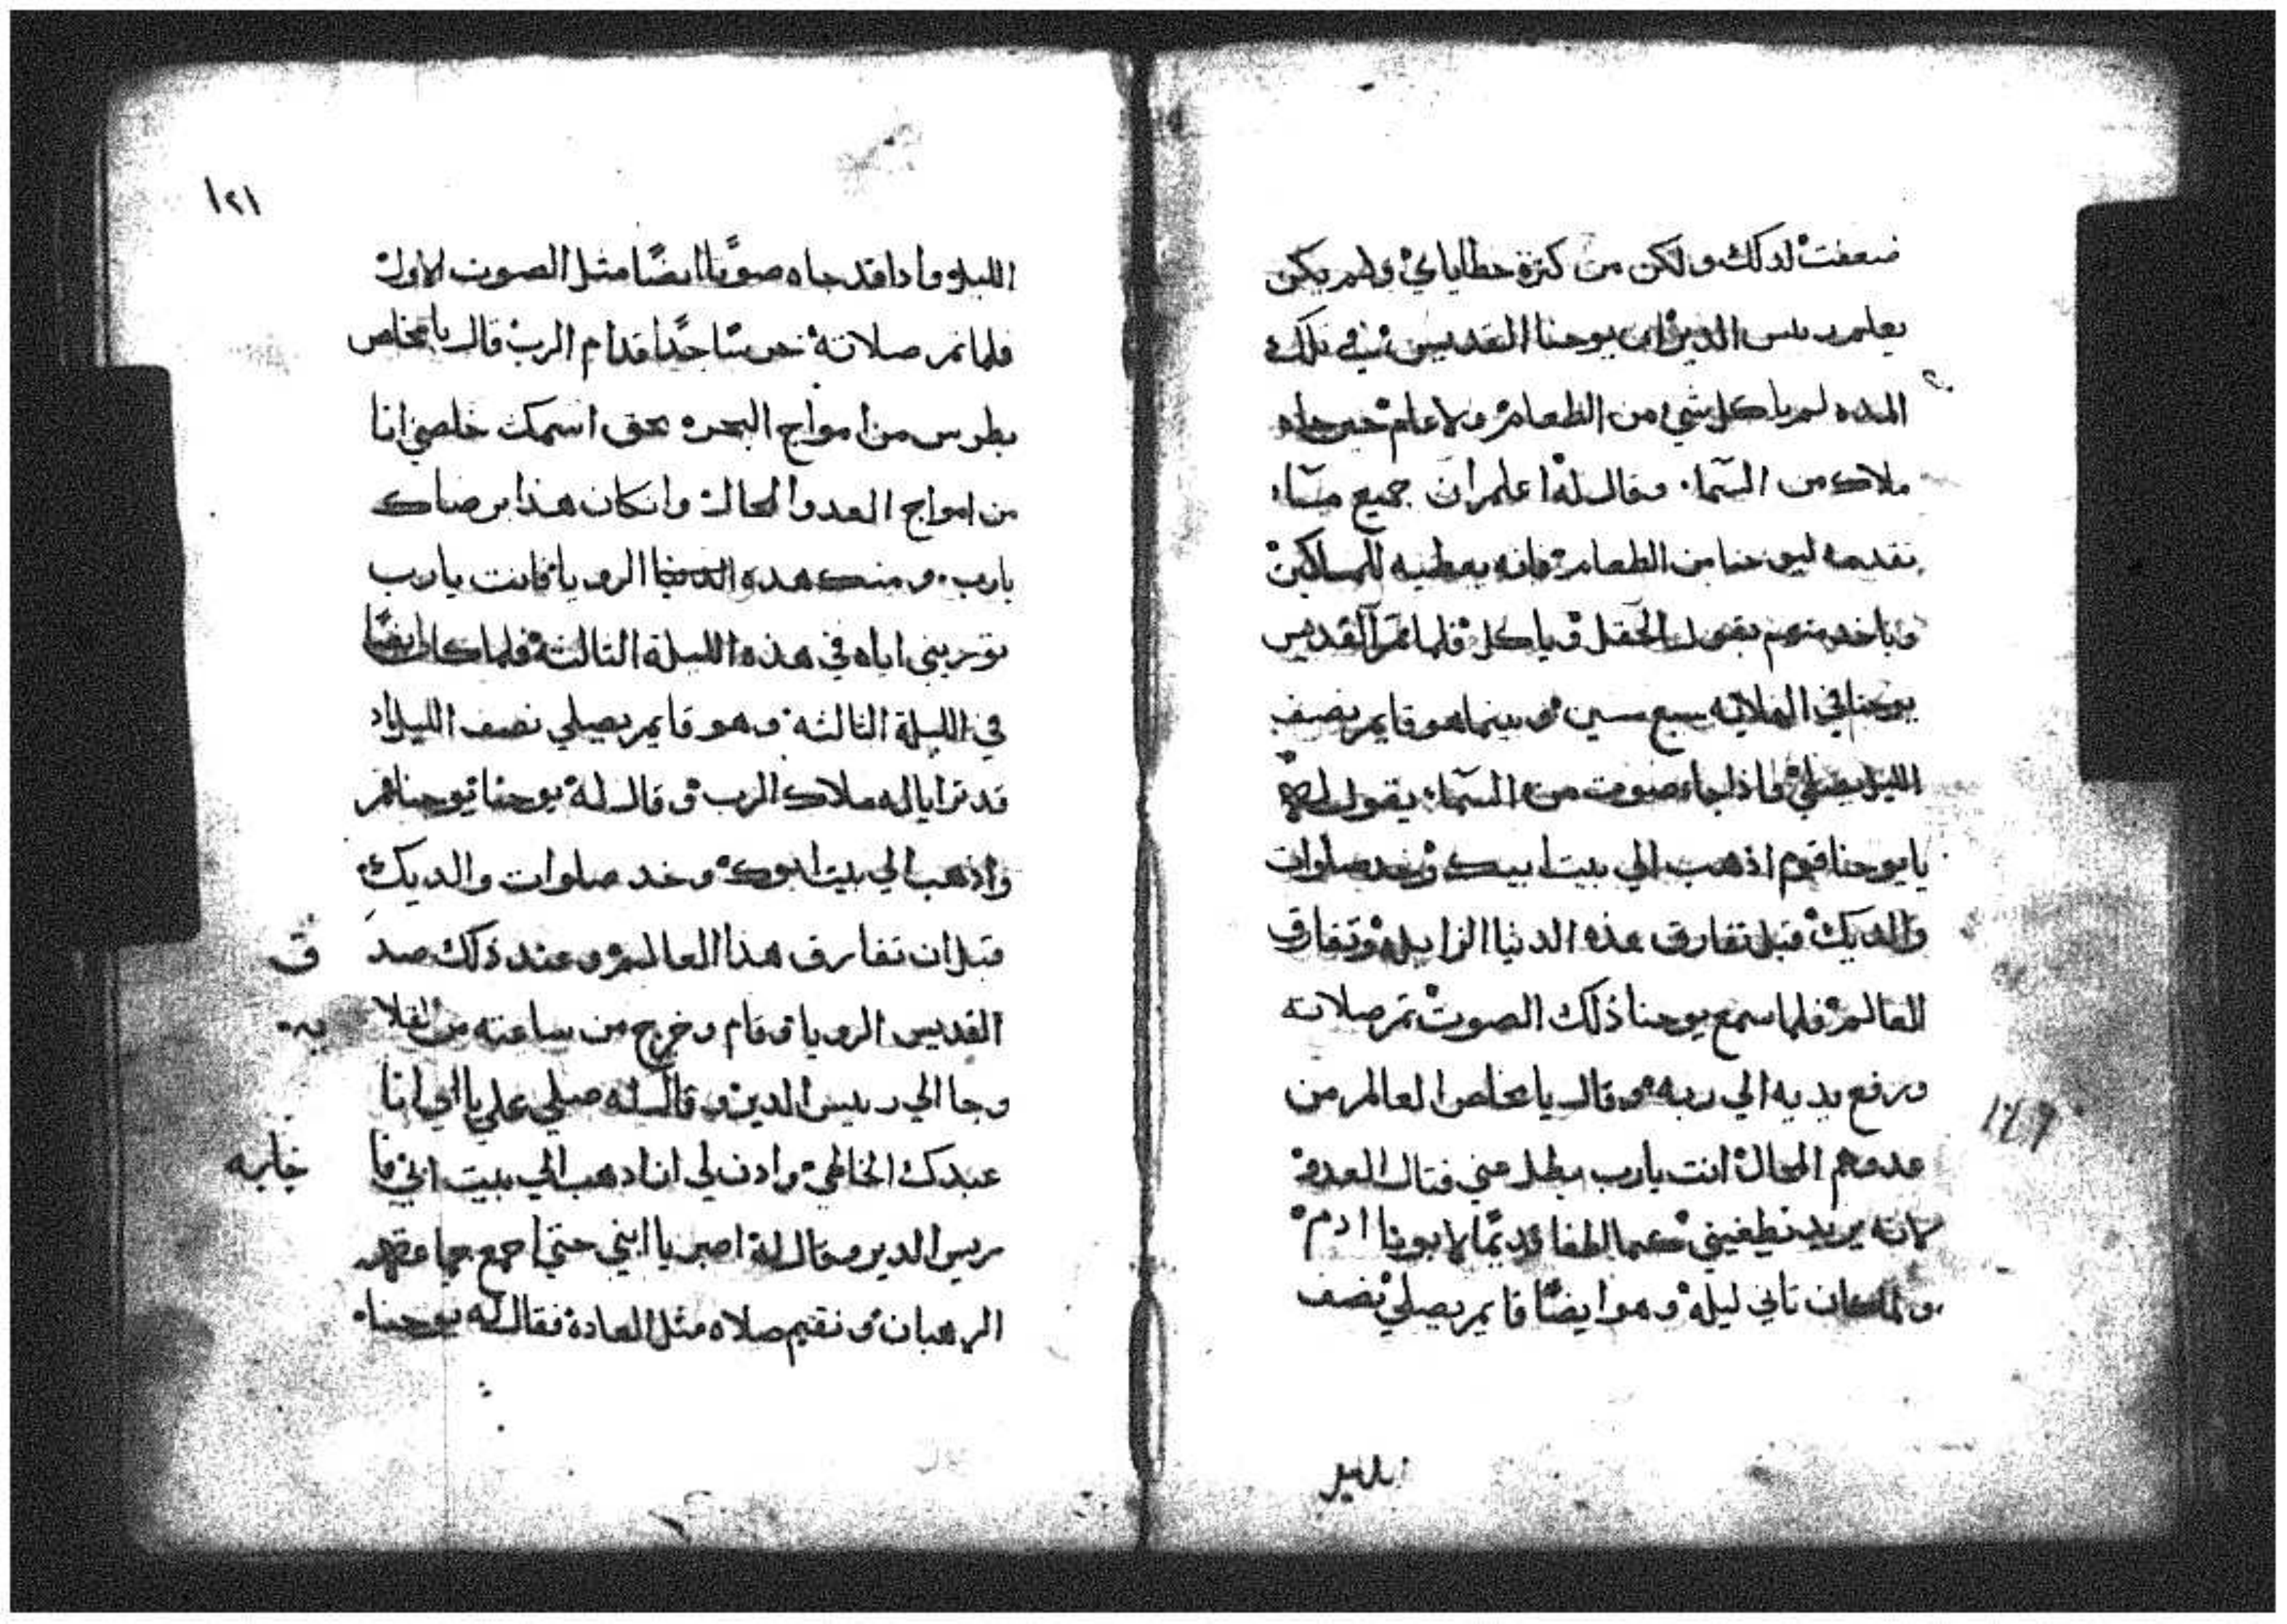 ضعفت لدلك ولكن من كترة خطاياي ولم يكن
يعلم ريس الدير ان يوحنا القديس في تلك
المده لم ياكل شي من الطعام ولا علم حين جاه
ملاك من السما وقال له اعلم ان جميع مسا
نقدمه ليوحنا من الطعام فانه يعطيه للمساكين
وياخد منهم بقول الحقل وياكل فلما تم القديس
يوحنا في القلايه سبع سنين وبينما هو قايم نصف
الليل يصلي واذا جاء صوت من السما يقول له
يا يوحنا قوم اذهب الي بيت ابيك وخد صلوات
والديك قبل تفارق هذه الدنيا الزايله وتفارق
العالم فلما سمع يوحنا ذلك الصوت تم صلاته
ورفع يديه الي ربه وقال يا مخلص العالم من
عدوهم المحال انت يارب بطل عني قتال العدو
لانه يريد يطغيني كما اطغا قديمًا لابونا ادم
ولما كان تاني ليله وهو ايضًا قايم يصلي نصف
الليل
١٤٩
١٢١
الليل وادا قد جاه صوتًا ايضًا مثل الصوت الاول
فلما تم صلاته خر ساجدًا قدام الرب قال يا مخلص
بطرس من امواج البحر بحق اسمك خلصني انا
من امواج العدو المحال وان كان هذا برضاك
يارب ومنك هده الرويا فانت يارب
توريني اياه في هذه الليلة التالتة فلما كان ايضًا
في الليلة التالته وهو قايم يصلي نصف الليل اد
قد ترايا له ملاك الرب وقال له يوحنا يوحنا قم
واذهب الي بيت ابوك وخد صلوات والديك
قبل ان تفارق هذا العالم وعند ذلك صد ق
القديس الرويا وقام وخرج من ساعته من القلا يه
وجا الي ريس الدير وقال له صلي علي يا ابي انا
عبدك الخاطي وادن لي ان ادهب الي بيت ابي فا جابه
ريس الدير وقال له اصبر يا ابني حتي اجمع جماعة
الرهبان ونقيم صلاه مثل العادة فقال له يوحنا